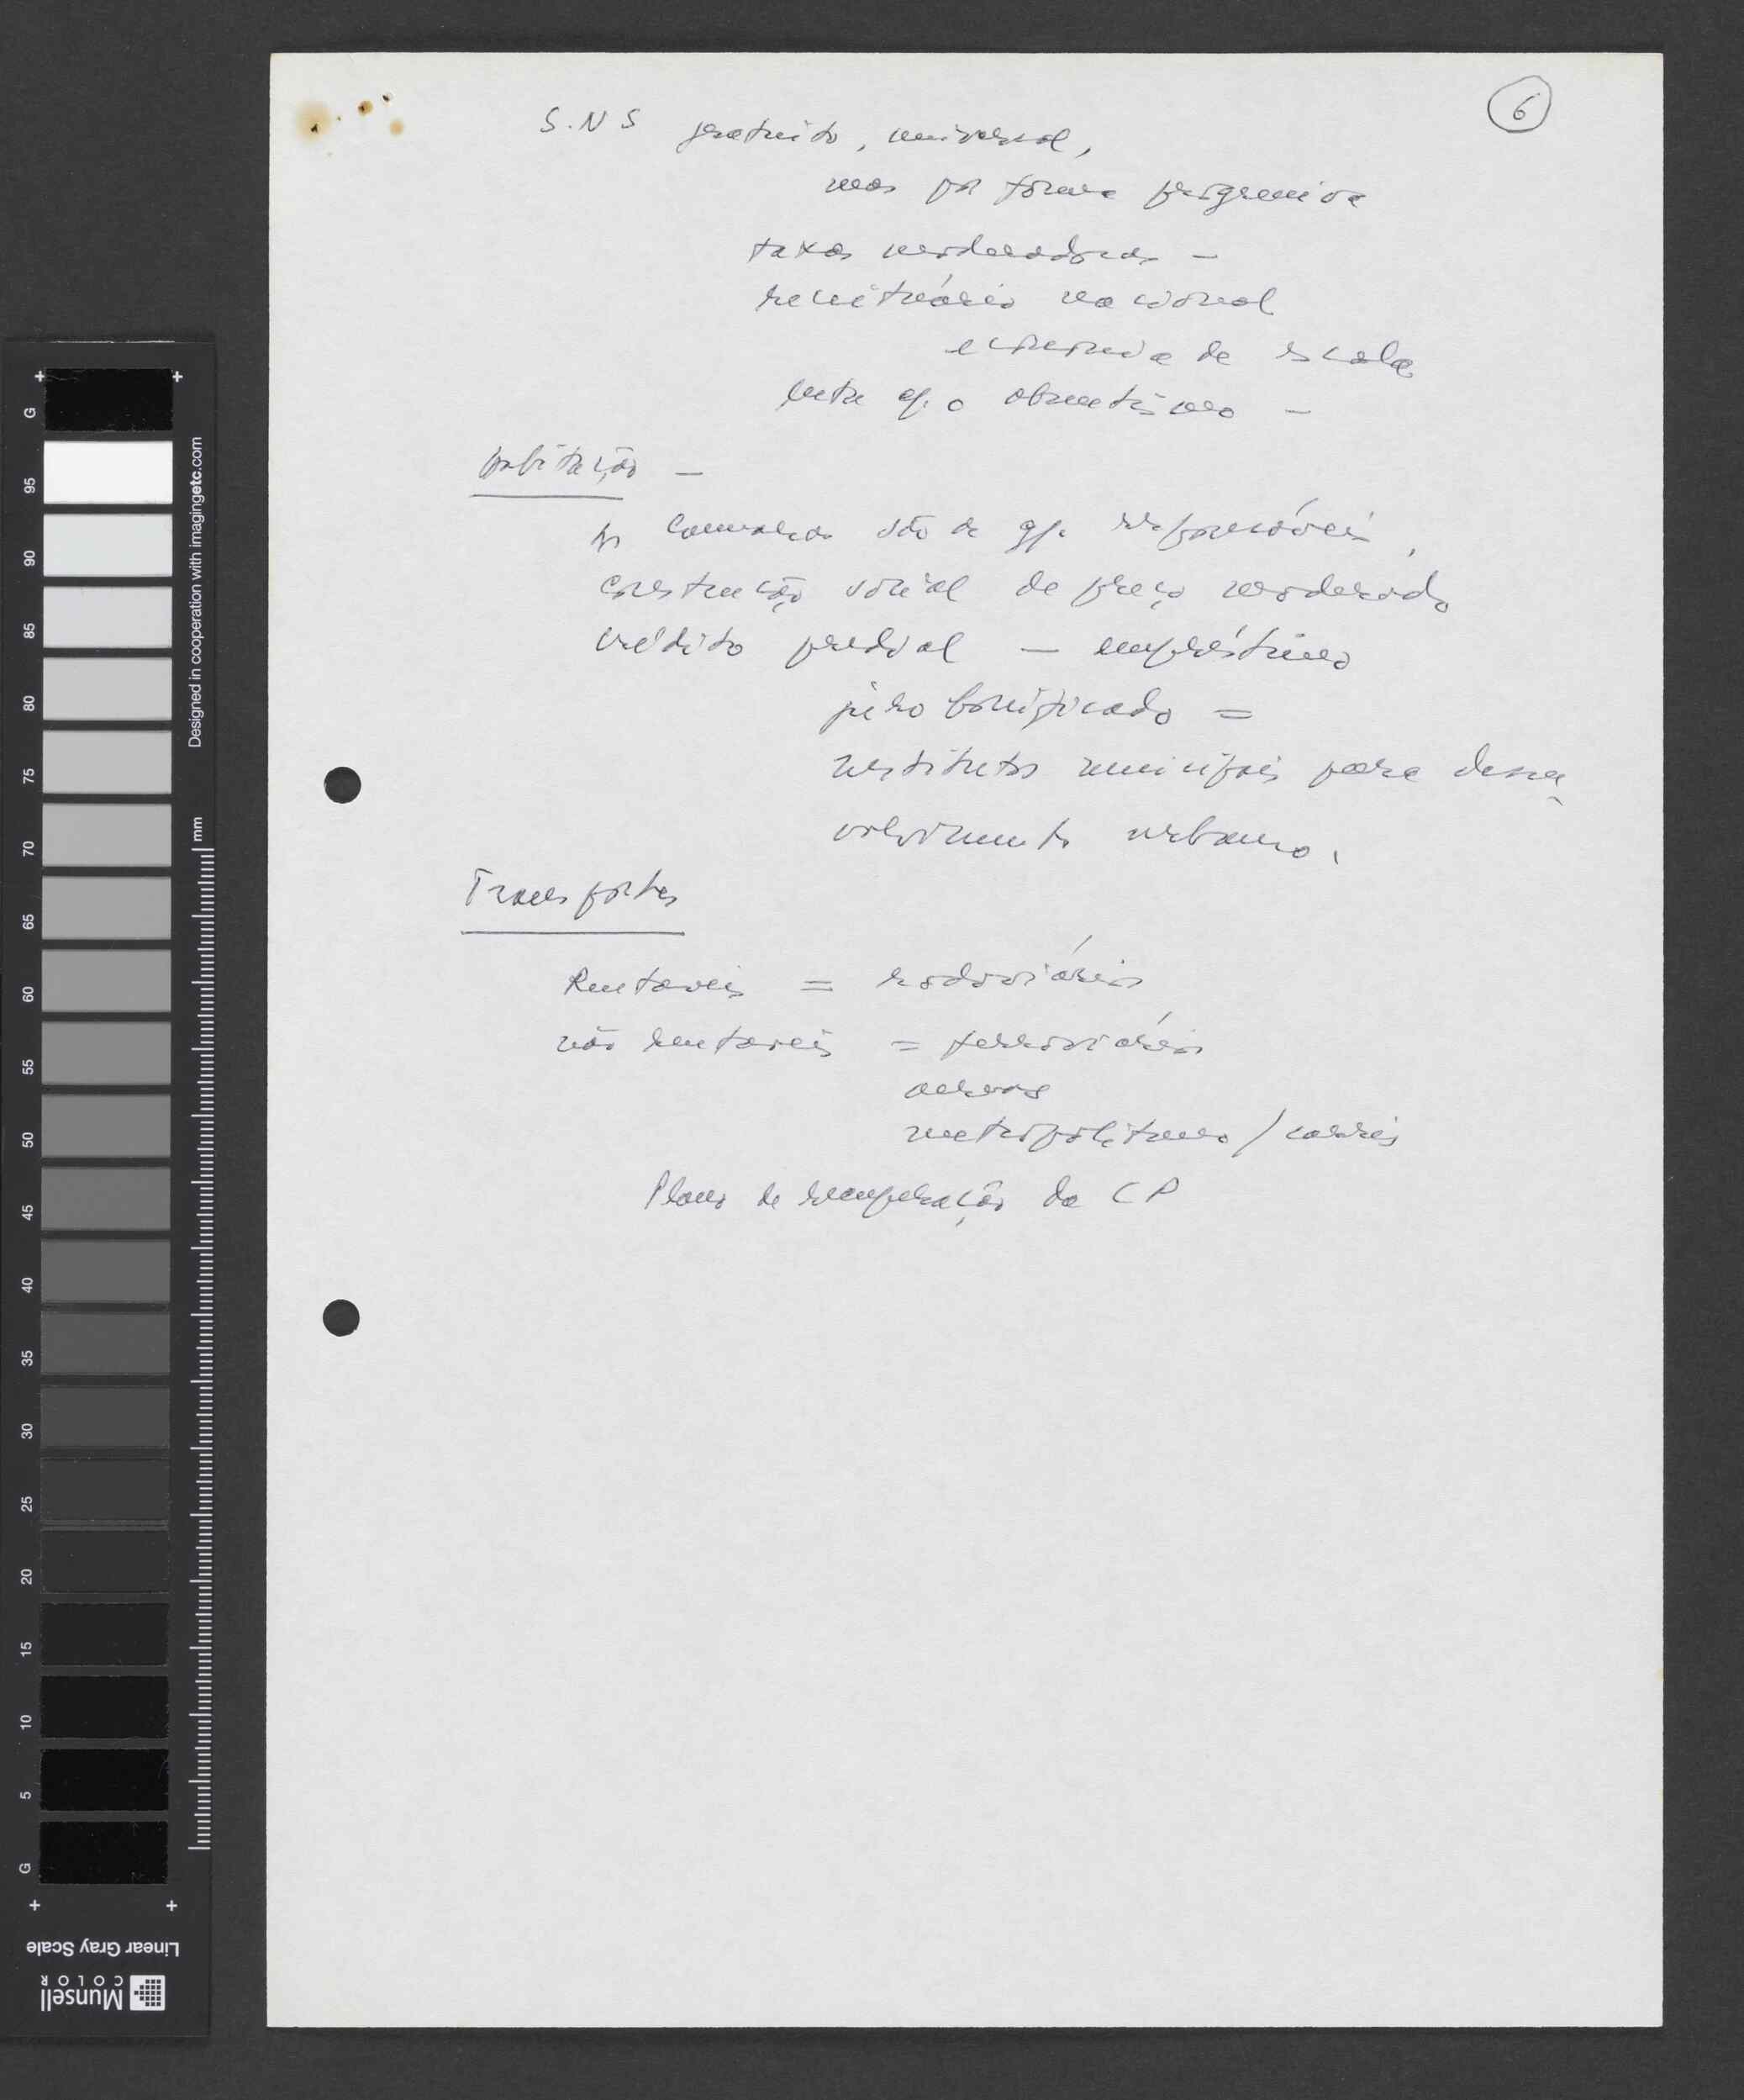 6
S.N S gratuito, universal,
mas por forma progressiva
taxas moderadoras -
receituário nacional
economia de escala
luta c/. o absentismo -
habitação -
As Camaras são os gr. responsáveis,
construção social de preço moderado
crédito predial - empréstimo
juro bonificado =
institutos municipais para desen
volvimento urbano.
Transportes
Rentaveis = rodoviários
não rentaveis = ferroviários
aereos
metropolitano / carris
Plano de recuperação da CP
G
95
90
85
80
75
70
65
60
55
50
45
40
35
30
25
20
15
10
5
G
mm
Designed in cooperation with imagingetc.com
Linear Gray Scale
Munsell
COLOR